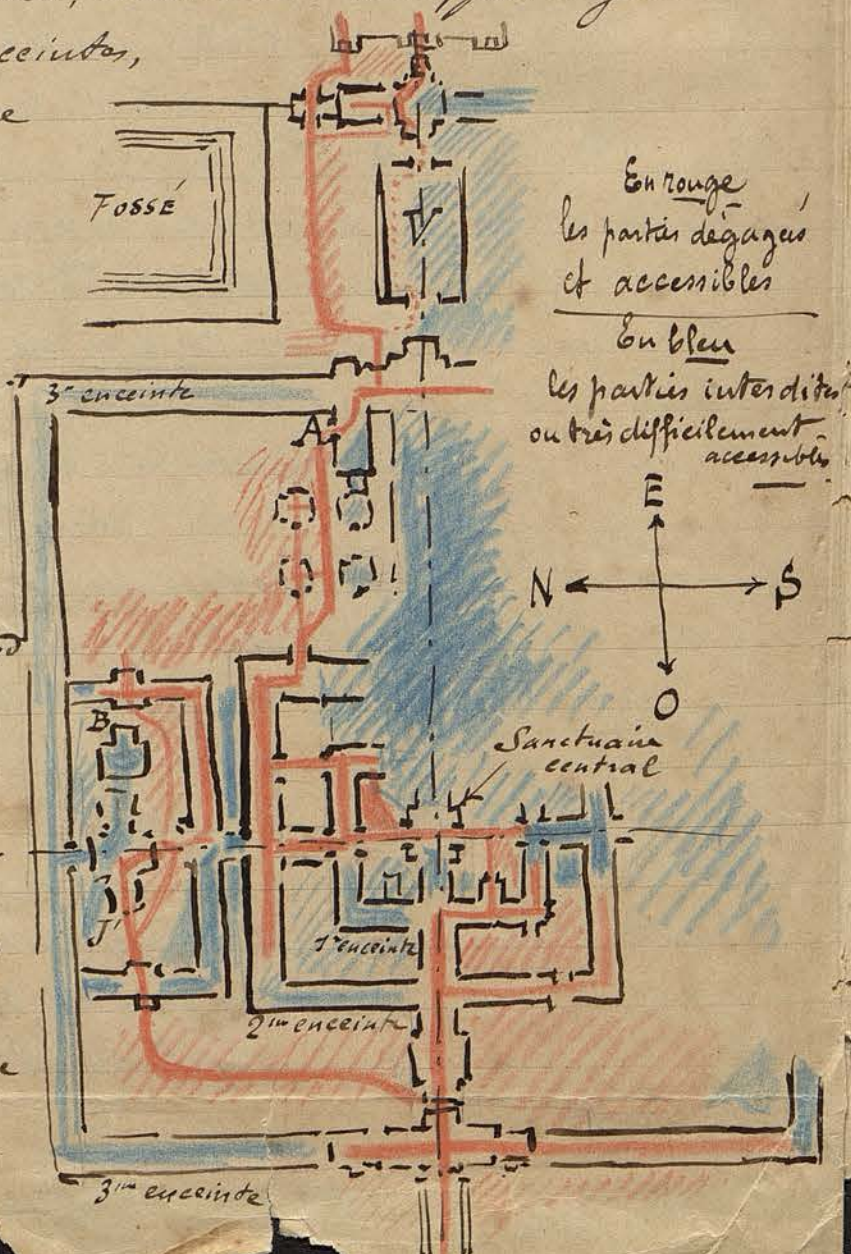 ceintes,
e
FOSSÉ
V
En rouge
les parties dégagées
et accessibles
En bleu
les parties interdites
ou très difficilement
accessibles
3e enceinte
A
E
N
S
O
B
Sanctuaire
central
J'
1re enceinte
2me enceinte
e
3me enceinte